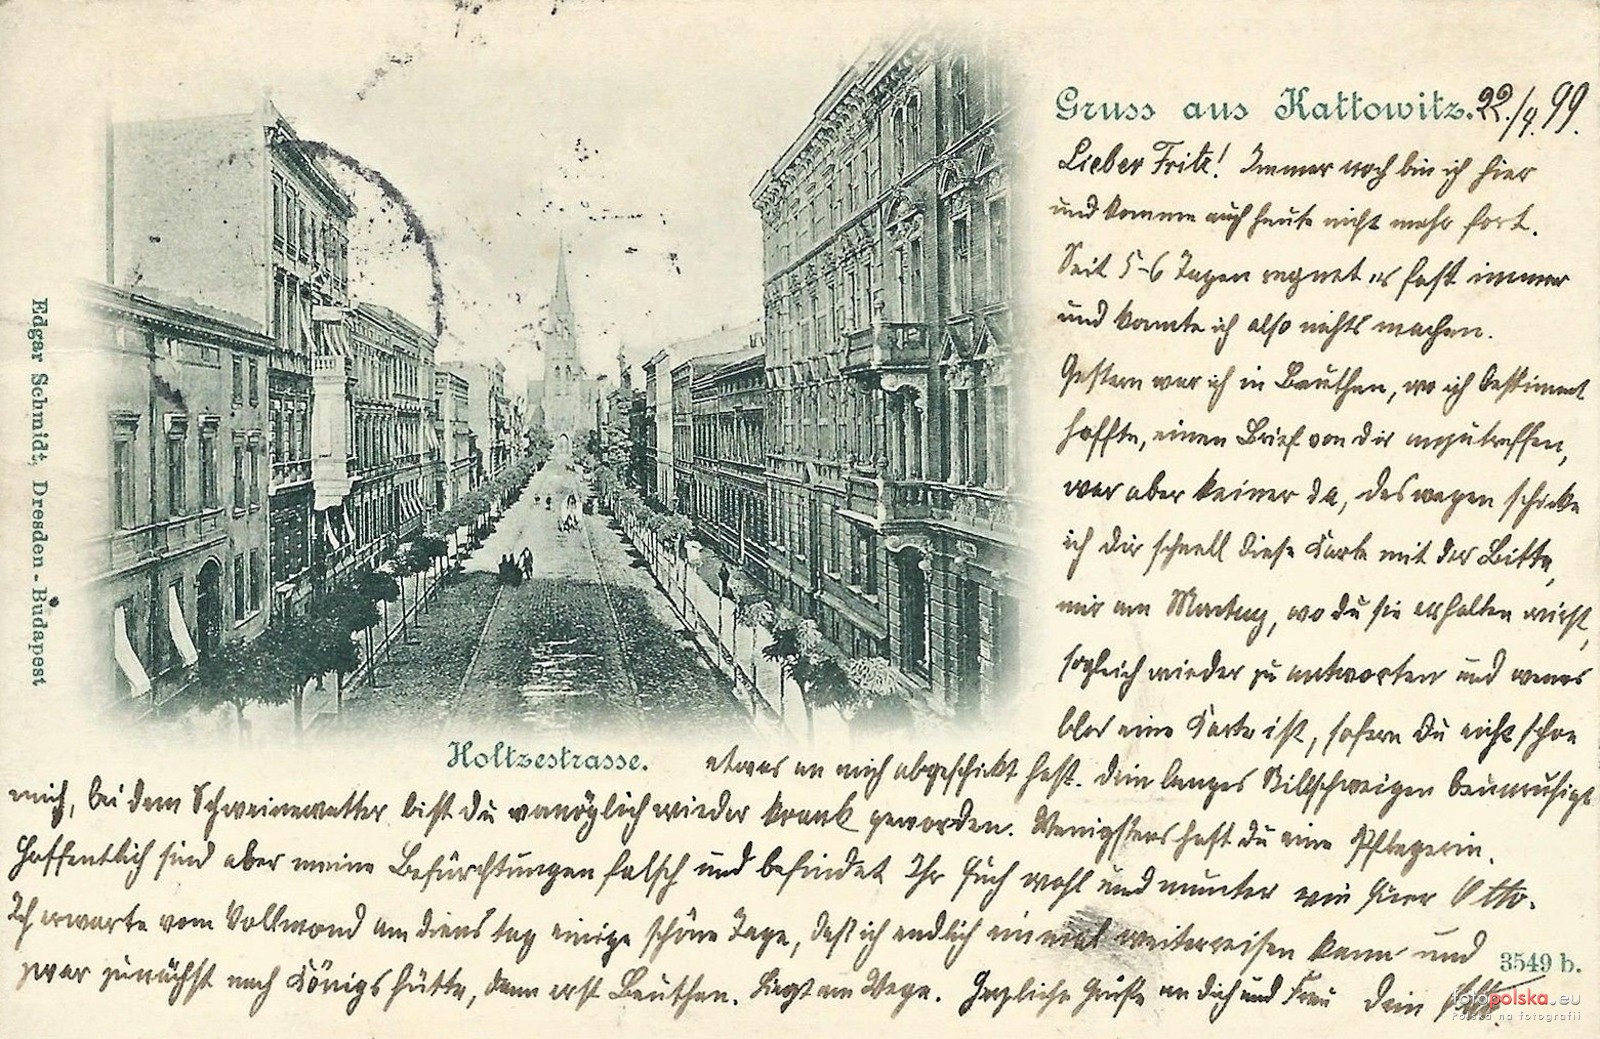 Gruss aus Kattowitz. 22./9. 99.
Lieber Fritz! Immer noch bin ich hier
und komme auch heute nicht mehr fort.
Seit 5-6 Tagen regnet es fast immer
und konnte ich also nichts machen.
Gestern war ich in Beuthen, wo ich bestimmt
hoffte, einen Brief von dir anzutreffen,
war aber keiner da, deswegen schicke
ich dir schnell diese Karte mit der Bitte,
mir am Montag, wo du sie erhalten wirst,
sogleich wieder zu antworten und wenns
blos eine Karte ist, sofern du nicht schon
etwas an mich abgeschickt hast. Dein langes Stillschweigen beunruhigt
mich, bei dem Schweinewetter bist du womöglich wieder krank geworden. Wenigstens hast du eine Pflegerin.
Hoffentlich sind aber meine Befürchtungen falsch und befindet Ihr Euch wohl und munter wie Euer Otto.
Ich erwarte vom Vollmond am Dienstag einige schöne Tage, daß ich endlich einmal weiterreisen kann und
zwar zunächst nach Königshütte, dann erst Beuthen. Liegt am Wege. Herzliche Grüße an dich und Frau Dein Otto.
Holtzestrasse.
Edgar Schmidt, Dresden - Budapest
3549 b.
fotopolska.eu
Polska na fotografii